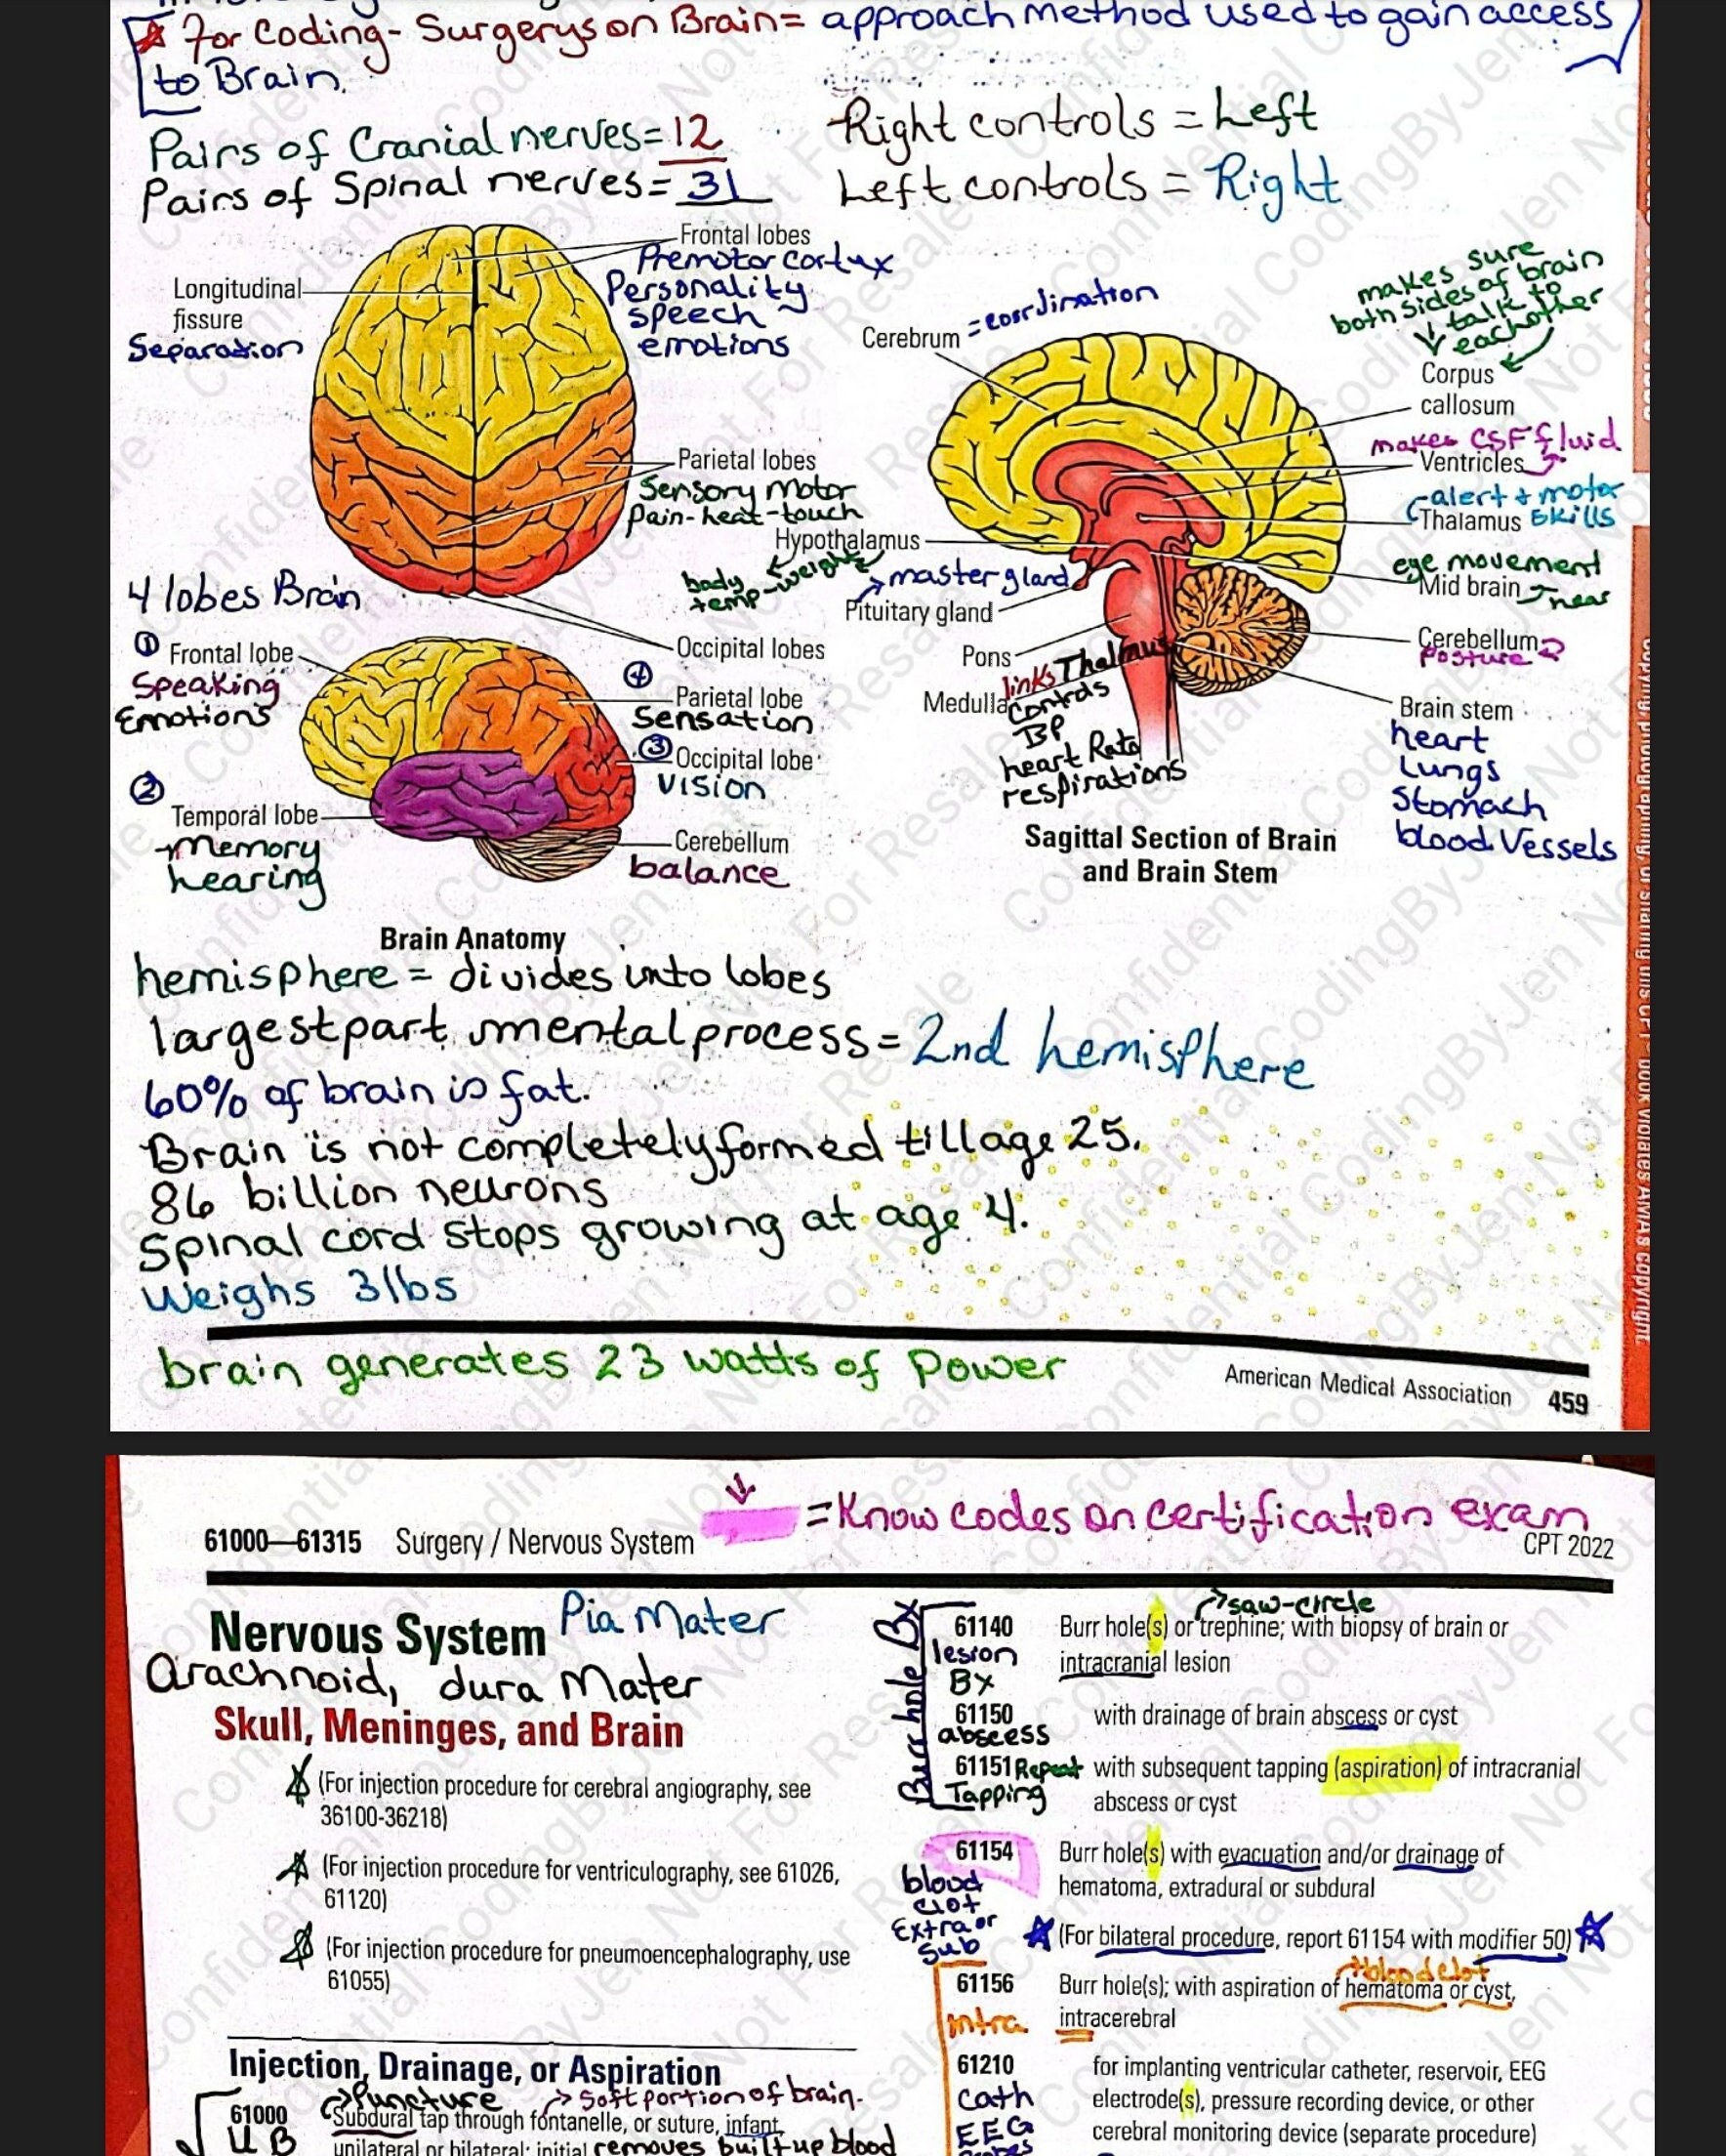 ★ For Coding- Surgerys on Brain= approach method used to gain access
to Brain.
Pairs of Cranial nerves=12
Pairs of Spinal nerves=31
Right controls = Left
Left controls = Right
Frontal lobes
Premotor cortux
Personality
speech
emotions
Longitudinal
fissure
Separation
Parietal lobes
Sensory Motor
Pain-heat-touch
4 lobes Brain
Occipital lobes
① Frontal lobe
Speaking
Emotions
④
Parietal lobe
Sensation
③ Occipital lobe
Vision
②
Temporal lobe
Memory
hearing
Cerebellum
balance
Brain Anatomy
Cerebrum = coordination
makes sure
both sides of brain
talk to
eachother
Corpus
callosum
makes CSF fluid
Ventricles
alert + motor
Thalamus skills
Hypothalamus
body
temp-weight
master gland
Pituitary gland
eye movement
Mid brain hear
Cerebellum
Posture
Pons
links Thalmus
Medulla controls
BP
heart Rate
respirations
Brain stem
heart
Lungs
Stomach
blood Vessels
Sagittal Section of Brain
and Brain Stem
hemisphere = divides into lobes
largest part, mental process = 2nd hemisphere
60% of brain is fat.
Brain is not completely formed till age 25.
86 billion neurons
Spinal cord stops growing at age 4.
Weighs 3lbs
brain generates 23 watts of Power
American Medical Association 459
copying, photographing, or sharing this CPT® book violates AMA's copyright.
= Know codes on certification exam
61000—61315 Surgery / Nervous System
CPT 2022
Nervous System Pia Mater
arachnoid, dura Mater
Skull, Meninges, and Brain
(For injection procedure for cerebral angiography, see
36100-36218)
(For injection procedure for ventriculography, see 61026,
61120)
(For injection procedure for pneumoencephalography, use
61055)
Injection, Drainage, or Aspiration
Puncture Soft portion of brain.
61000 Subdural tap through fontanelle, or suture, infant,
unilateral or bilateral; initial removes built up blood
Burr hole Bx
saw-circle
61140 Burr hole(s) or trephine; with biopsy of brain or
lesion intracranial lesion
Bx
61150 with drainage of brain abscess or cyst
abscess
61151 Repeat with subsequent tapping (aspiration) of intracranial
Tapping abscess or cyst
61154 Burr hole(s) with evacuation and/or drainage of
blood hematoma, extradural or subdural
clot
Extra or
Sub
★ (For bilateral procedure, report 61154 with modifier 50) ★
blood clot
61156 Burr hole(s); with aspiration of hematoma or cyst,
intra intracerebral
61210 for implanting ventricular catheter, reservoir, EEG
Cath electrode(s), pressure recording device, or other
EEG cerebral monitoring device (separate procedure)
Confidential CodingByJen Not For Resale